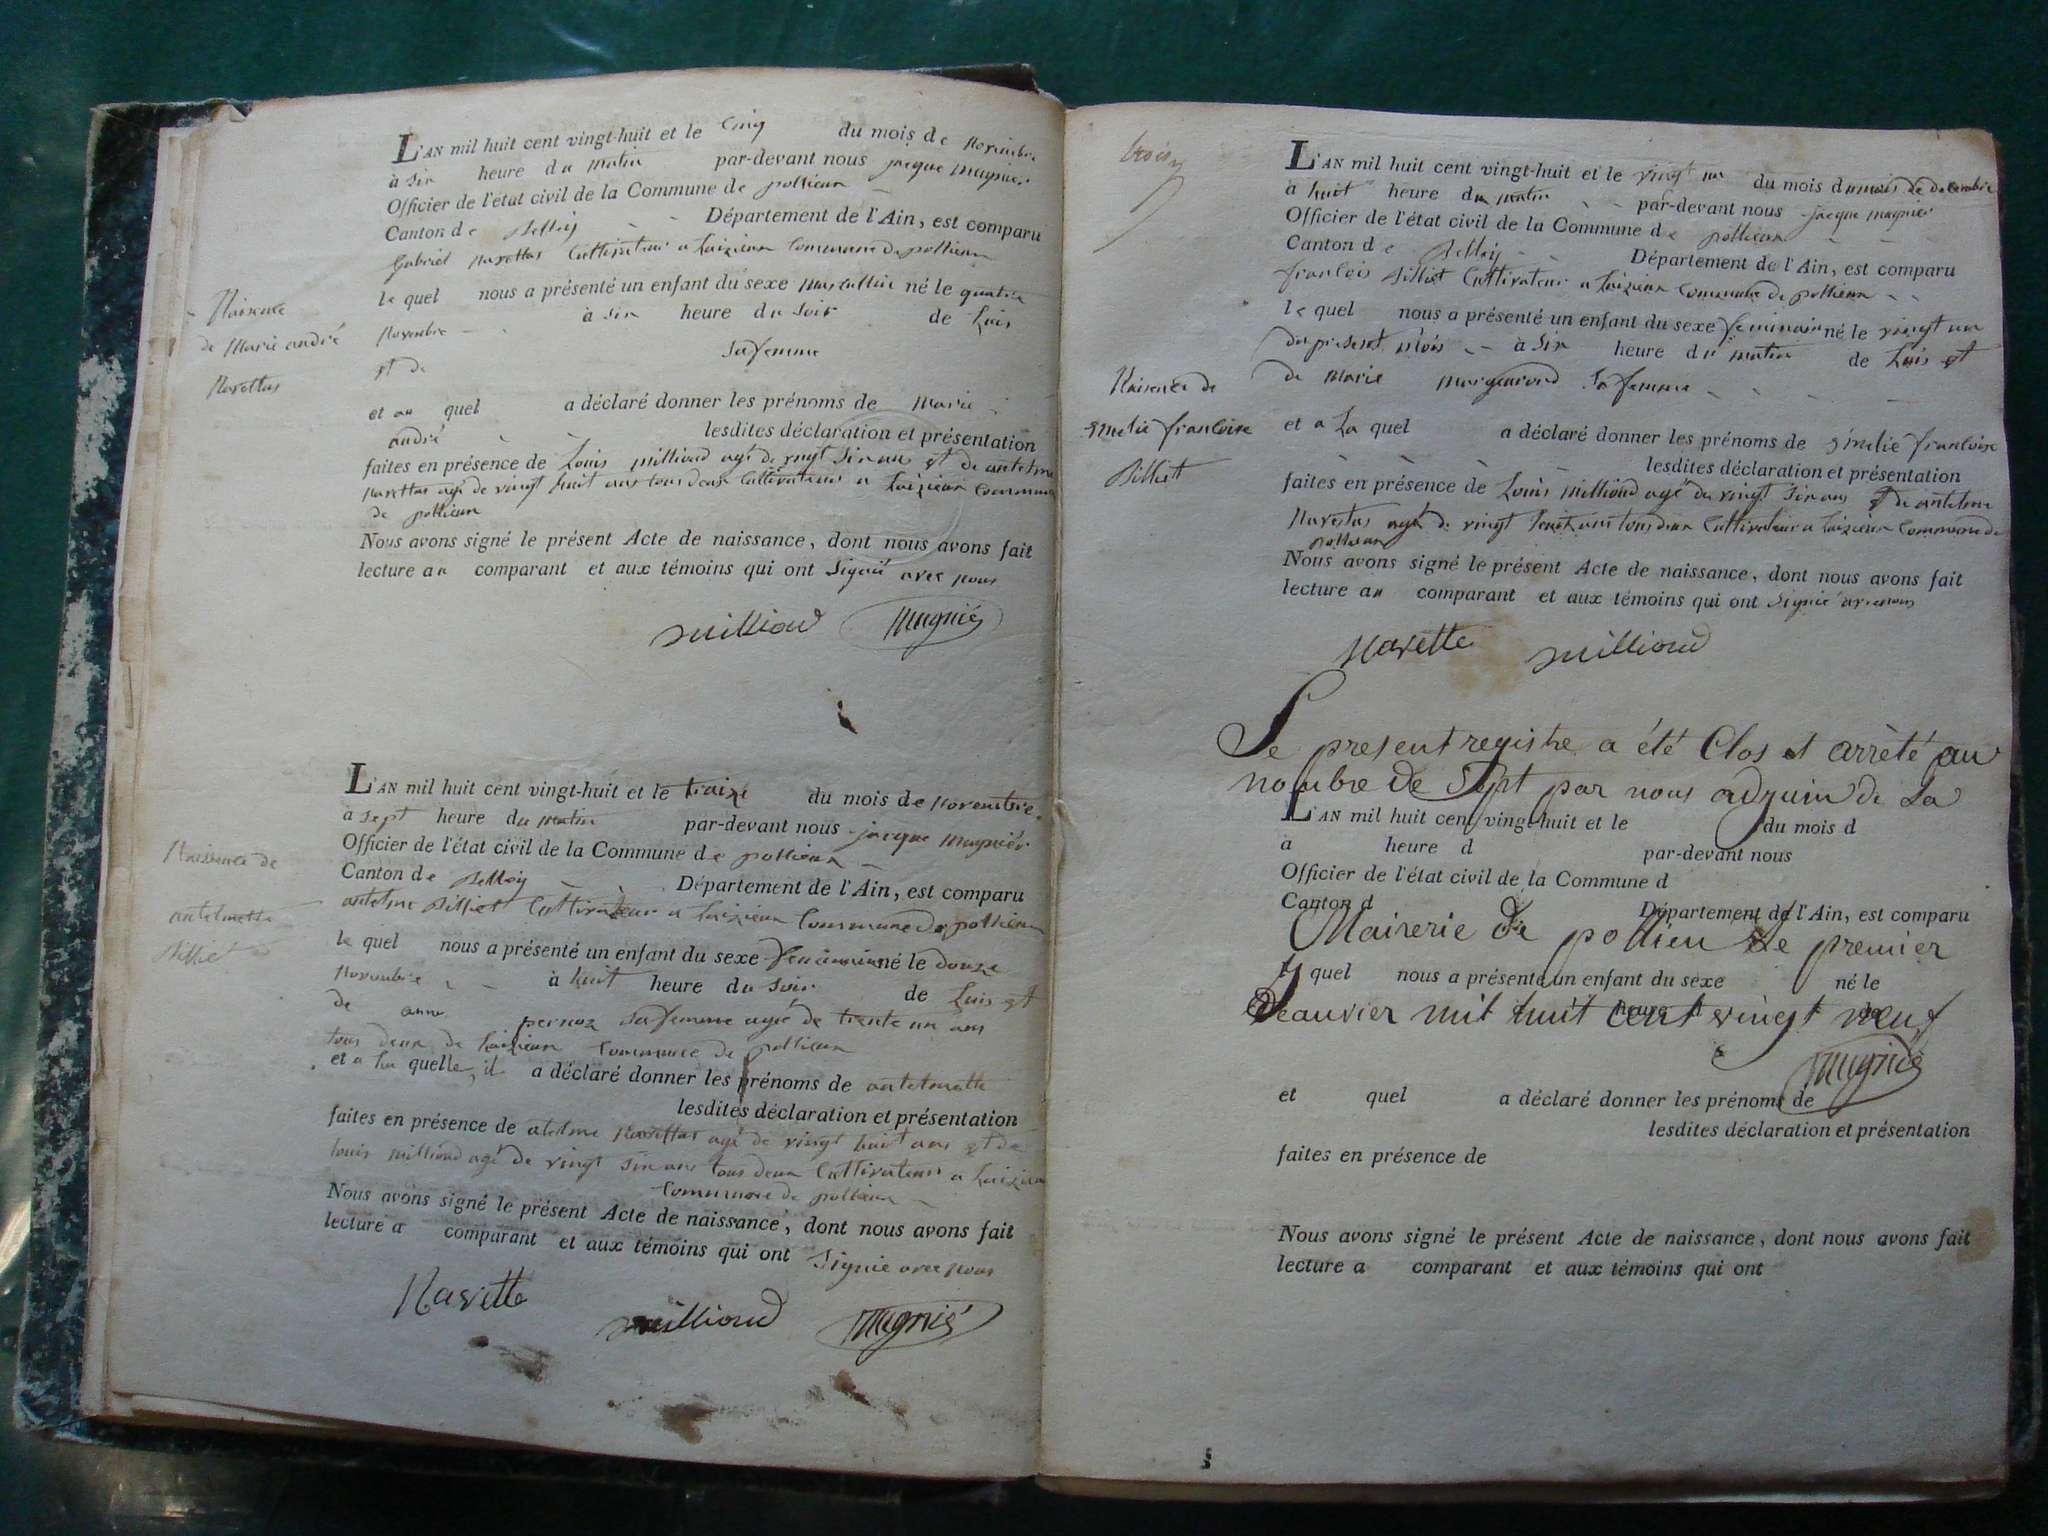 L'AN mil huit cent vingt-huit et le cinq du mois de Novembre
à six heure du matin par-devant nous jacque magnier
Officier de l'état civil de la Commune de pollieux
Canton de Belley Département de l'Ain, est comparu
Gabriel Navettas Cultivateur a Laizieux Commune de pollieux
le quel nous a présenté un enfant du sexe masculin né le quatre
Novembre à six heure du soir de Luis
et de sa femme
et au quel a déclaré donner les prénoms de Marie
andré lesdites déclaration et présentation
faites en présence de Louis milliond agé de vingt six ans et de antelme
Navettas agé de vingt huit ans tous deux Cultivateurs a Laizieux Commune
de pollieux
Nous avons signé le présent Acte de naissance, dont nous avons fait
lecture au comparant et aux témoins qui ont Signié avec nous
milliond Magnié
Naisence
de Marie andré
Navettas
L'AN mil huit cent vingt-huit et le traize du mois de Novembre
a sept heure du matin par-devant nous jacque magniér
Officier de l'état civil de la Commune de pollieux
Canton de Belley Département de l'Ain, est comparu
antelme Billiet Cultivateur a Laizieux Commune de pollieux
le quel nous a présenté un enfant du sexe feminin né le douze
Novembre à huit heure du Soir de Luis et
de anne pernoz sa femme agié de trente un ans
tous deux de Laizieux Commune de pollieux
et a La quelle il a déclaré donner les prénoms de antelmette
lesdites déclaration et présentation
faites en présence de antelme Navettas agé de vingt huit ans et de
louis milliond agé de vingt six ans tous deux Cultivateurs a Laizieux
Commune de pollieux
Nous avons signé le présent Acte de naissance, dont nous avons fait
lecture a comparant et aux témoins qui ont Signié avec nous
Navette milliond Magnié
Naisence de
antelmette
Billiet
L'AN mil huit cent vingt-huit et le vingt un du mois du mois de decembre
à huit heure du matin par-devant nous jacque magnier
Officier de l'état civil de la Commune de pollieux
Canton de Belley Département de l'Ain, est comparu
francois Billiet Cultivateur a Laizieux Commune de pollieux
le quel nous a présenté un enfant du sexe feminain né le vingt un
du present mois à six heure du matin de Luis et
de Marie sa femme
et a La quel a déclaré donner les prénoms de Emelie francoise
lesdites déclaration et présentation
faites en présence de Louis milliond agé de vingt six ans et de antelme
Navettas agé de vingt huit ans tous deux Cultivateur a Laizieux Commune de
pollieux
Nous avons signé le présent Acte de naissance, dont nous avons fait
lecture au comparant et aux témoins qui ont Signié avec nous
Navette milliond
Naisence de
Emelie francoise
Billiet
Le present registre a été Clos et arrèté au
nombre de Sept par nous adjuin de La
L'AN mil huit cent vingt-huit et le du mois d
à heure d par-devant nous
Officier de l'état civil de la Commune d
Canton d Département de l'Ain, est comparu
Mairerie de pollieu Le premier
l quel nous a présenté un enfant du sexe né le
Jeauvier mil huit cent vingt neuf
à heure d de
Magnié
et quel a déclaré donner les prénoms de
lesdites déclaration et présentation
faites en présence de
Nous avons signé le présent Acte de naissance, dont nous avons fait
lecture a comparant et aux témoins qui ont